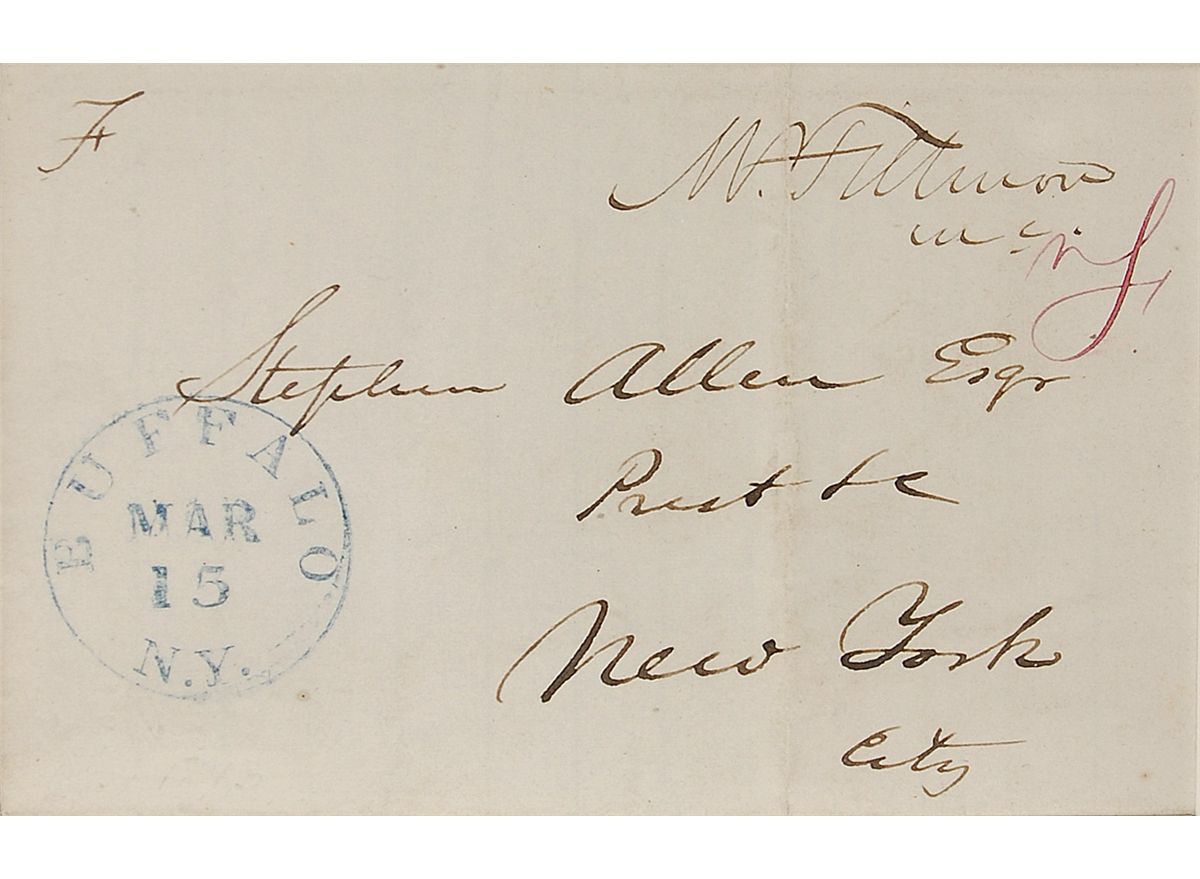 F
M. Fillmore
M C.
Stephen Allen Esqr
Prest &c
New York
City
BUFFALO
MAR
15
N.Y.